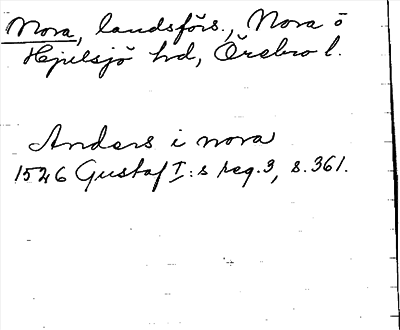 Nora, landsförs., Nora o
Hjulsjö hd, Örebro l.
Anders i nora
1526 Gustaf I:s reg. 3, s. 361.